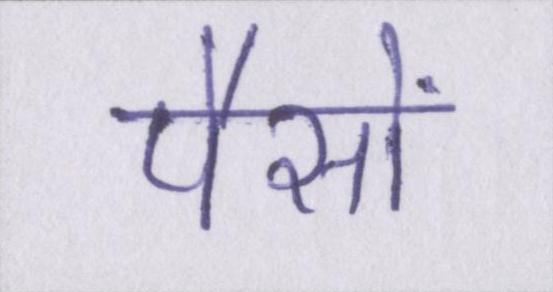 पैसों